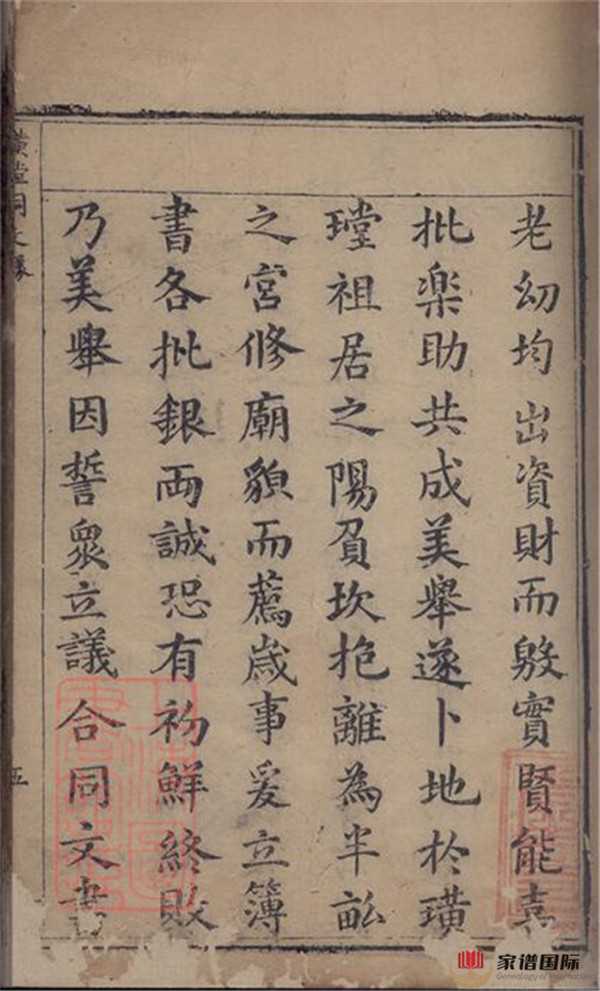 老幼均出資財而殷實賢能喜
批楽助共成美舉遂卜地扵璜
瑝祖居之陽負坎抱離為半畝
之宮修廟貌而薦歳事爰立簿
書各批銀両誠恐有初鮮終敗
乃美舉因誓衆立議合同文書
五
家谱国际
Genealogy of International